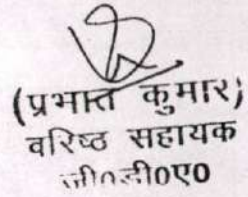 (प्रभात कुमार)
वरिष्ठ सहायक
जी0डी0ए0